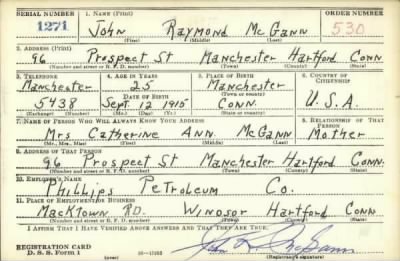 SERIAL NUMBER 1. NAME (Print) ORDER NUMBER
1271 John Raymond McGann 530
(First) (Middle) (Last)
2. ADDRESS (Print)
96 Prospect St Manchester Hartford Conn
(Number and street or R. F. D. number) (Town) (County) (State)
3. TELEPHONE 4. AGE IN YEARS 5. PLACE OF BIRTH 6. COUNTRY OF CITIZENSHIP
Manchester 25 Manchester
DATE OF BIRTH (Town or county)
5438 Sept. 12 1915 Conn. U.S.A.
(Exchange) (Number) (Mo.) (Day) (Yr.) (State or country)
7. NAME OF PERSON WHO WILL ALWAYS KNOW YOUR ADDRESS 8. RELATIONSHIP OF THAT PERSON
Mrs Catherine Ann McGann Mother
(Mr., Mrs., Miss) (First) (Middle) (Last)
9. ADDRESS OF THAT PERSON
96 Prospect St Manchester Hartford Conn.
(Number and street or R. F. D. number) (Town) (County) (State)
10. EMPLOYER'S NAME
Phillips Petroleum Co.
11. PLACE OF EMPLOYMENT OR BUSINESS
MackTown RD. Windsor Hartford Conn
(Number and street or R. F. D. number) (Town) (County) (State)
I AFFIRM THAT I HAVE VERIFIED ABOVE ANSWERS AND THAT THEY ARE TRUE.
REGISTRATION CARD
D. S. S. Form 1 John R. McGann
(Registrant's signature)